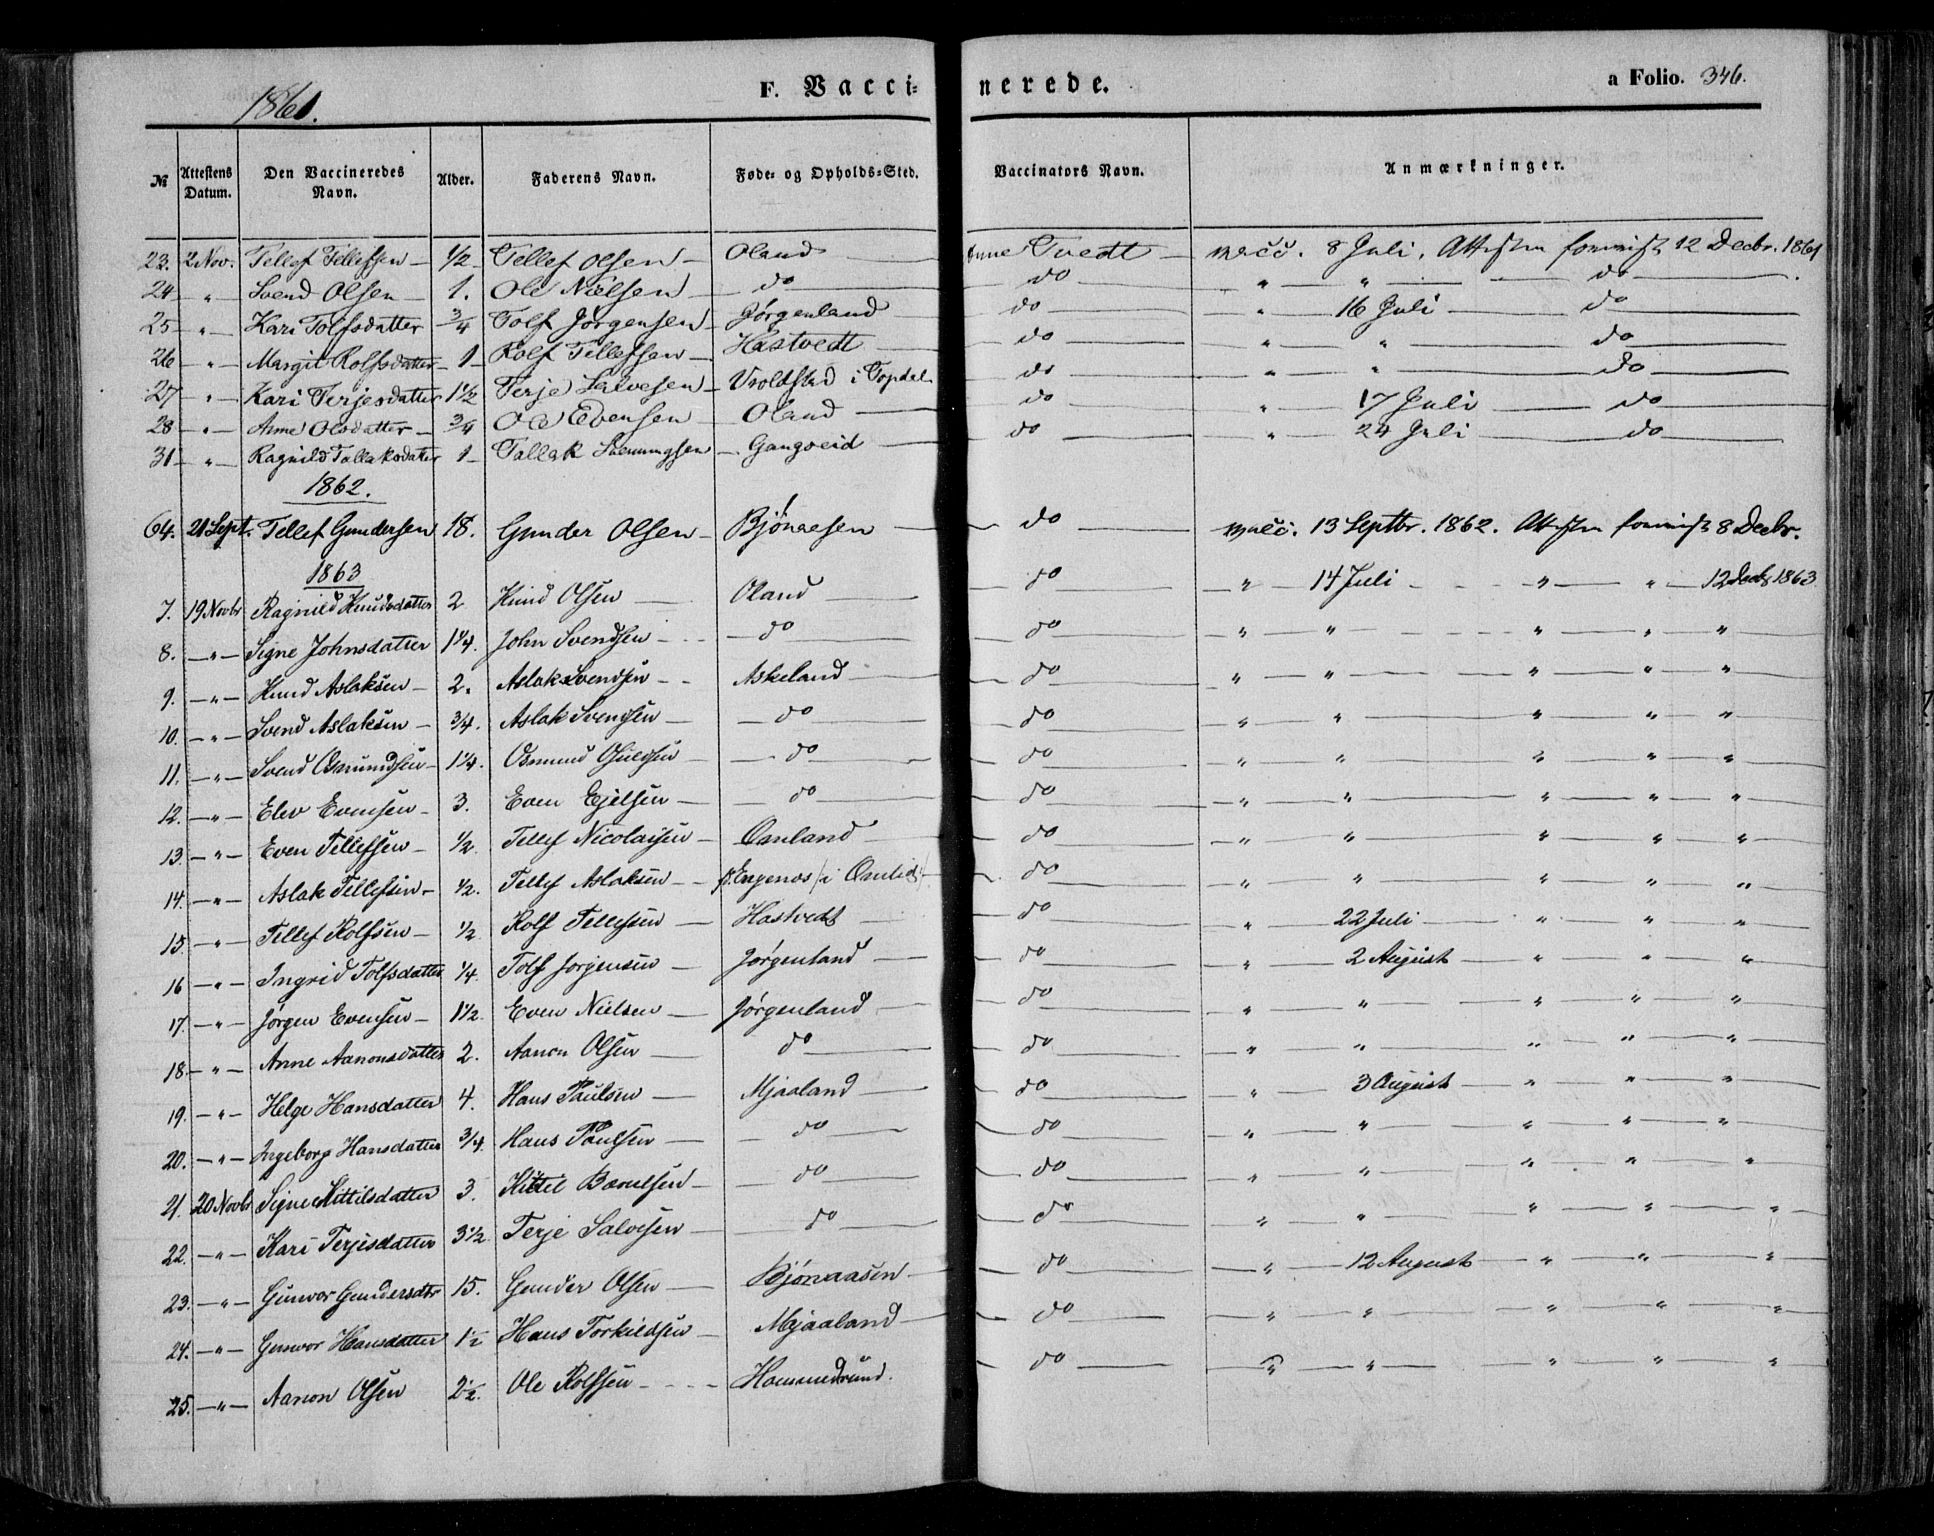 1861. F. Vacci- nerede. a Folio. 346.
№ Attestens Datum. Den Vaccineredes Navn. Alder. Faderens Navn. Føde- og Opholds-Sted. Vaccinators Navn. Anmærkninger.
23. 2 Nov. Tellef Tellefsen 1/2 Tellef Olsen Oland Anne Tvedt vacc. 8 Juli. Attesten forevist 12 Decbr. 1861
24 " Svend Olsen 1. Ole Nielsen do do " " do
25 " Kari Tolfsdatter 3/4 Tolf Jørgensen Jørgenland do " 16 Juli do
26 " Margit Rolfsdatter 1 Rolf Tellefsen Hastvedt do " " do
27 " Kari Terjesdatter 1 1/2 Terje Salvesen i do " " do
28 " Anne Olsdatter 3/4 Ole Evensen Oland do " 17 Juli do
31 " Ragnild Tallaksdatter 1 Tallak Gangveid do " 24 Juli do
1862.
64. 21 Sept. Tellef Gundersen 18. Gunder Olsen Bjönaasen do vacc. 13 Septbr. 1862. Attesten forevist 8 Decbr.
1863
7. 19 Novbr Ragnild Knudsdatter 2 Knud Olsen Oland do " 14 Juli " " 12 Decbr 1863
8. " Signe Johnsdatter 1 1/4. John Svendsen do do " " " " "
9. " Knud Aslaksen 2. Aslak Svendsen Askeland do " " " " "
10. " Svend Aslaksen 3/4. Aslak Svendsen do do " " " " "
11. " Svend Osmundsen 1 1/4. Osmund do do " " " " "
12. " Elev Evensen 3. Even Ejelsen do do " " " " "
13. " Even Tellefsen 1/2. Tellef Nicolaisen Omland do " " " " "
14. " Aslak Tellefsen 1/2. Tellef Aslaksen Engenes i Omlid do " " " " "
15. " Tellef Rolfsen 1/2 Rolf Tellefsen Hastvedt do " 22 Juli " " "
16 " Ingrid Tolfsdatter 1/4. Tolf Jørgensen Jørgenland do " 2 August " " "
17. " Jørgen Evensen 1 1/2. Even Nielsen Jørgenland do " " " " "
18. " Anne Aanonsdatter 2. Aanon Olsen do do " " " " "
19. " Helge Hansdatter 4. Hans Paulsen Mjaaland do " 3 August " " "
20. " Ingeborg Hansdatter 3/4. Hans Paulsen do do " " " " "
21. 20 Novbr Signe Kittilsdatter 3. Kittil do do " " " " "
22. " Kari Terjesdatter 3 1/2 Terje Salvesen do do " " " " "
23. " Gunvor Gundersdtr 15. Gunder Olsen Bjönaasen do " 12 August " " "
24. " Gunvor Hansdatter 1 1/2 Hans Torkildsen Mjaaland do " " " " "
25. " Aanon Olsen 2 1/2. Ole Rolfsen do " " " " "